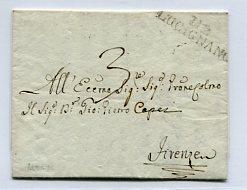 112
LUCIGNANO
3
All' Eccmo Sigr. Sigr. Prone Colmo
Il Sigr. Dr. Gio: Pietro Capei
Firenze